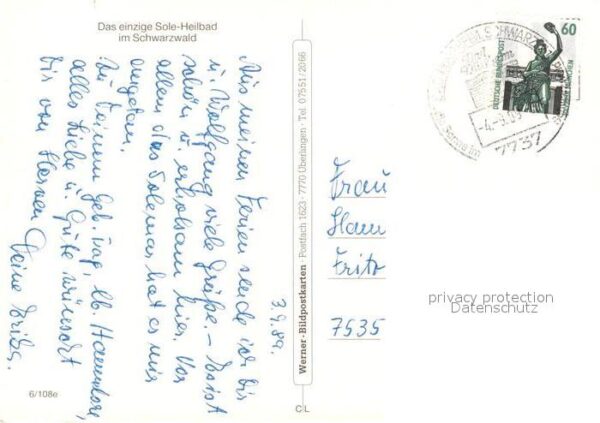 Das einzige Sole-Heilbad
im Schwarzwald
3.9.89.
Aus meinen Ferien sende ich Dir
u. Wolfgang viele Grüße. – Es ist
schön u. erholsam hier. Vor
allem das Solemar hat es mir
angetan.
Zu Deinem Geb. Tag, lb.
alles Liebe u. Gute wünscht
Dir von Herzen Deine Erika.
6/108e
Werner-Bildpostkarten · Postfach 1623 · 7770 Überlingen · Tel. 07551/2066
CL
60
DEUTSCHE BUNDESPOST
MÜNCHEN
-4.-9.89
7737
Frau
Fritz
7535
privacy protection
Datenschutz